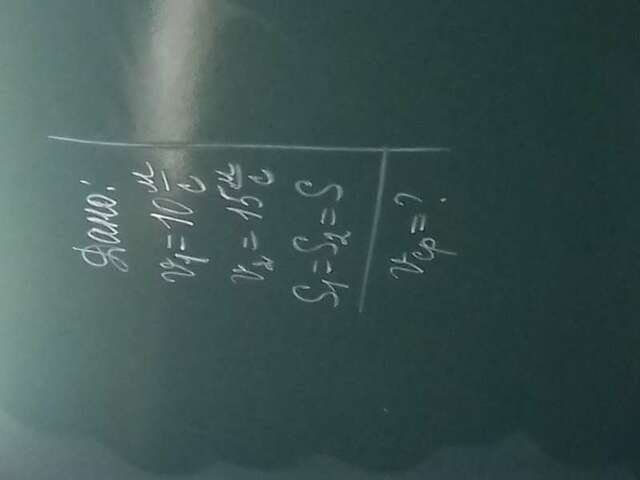 Дано:
v₁ = 10 м/с
v₂ = 15 м/с
S₁ = S₂ = S
vср = ?